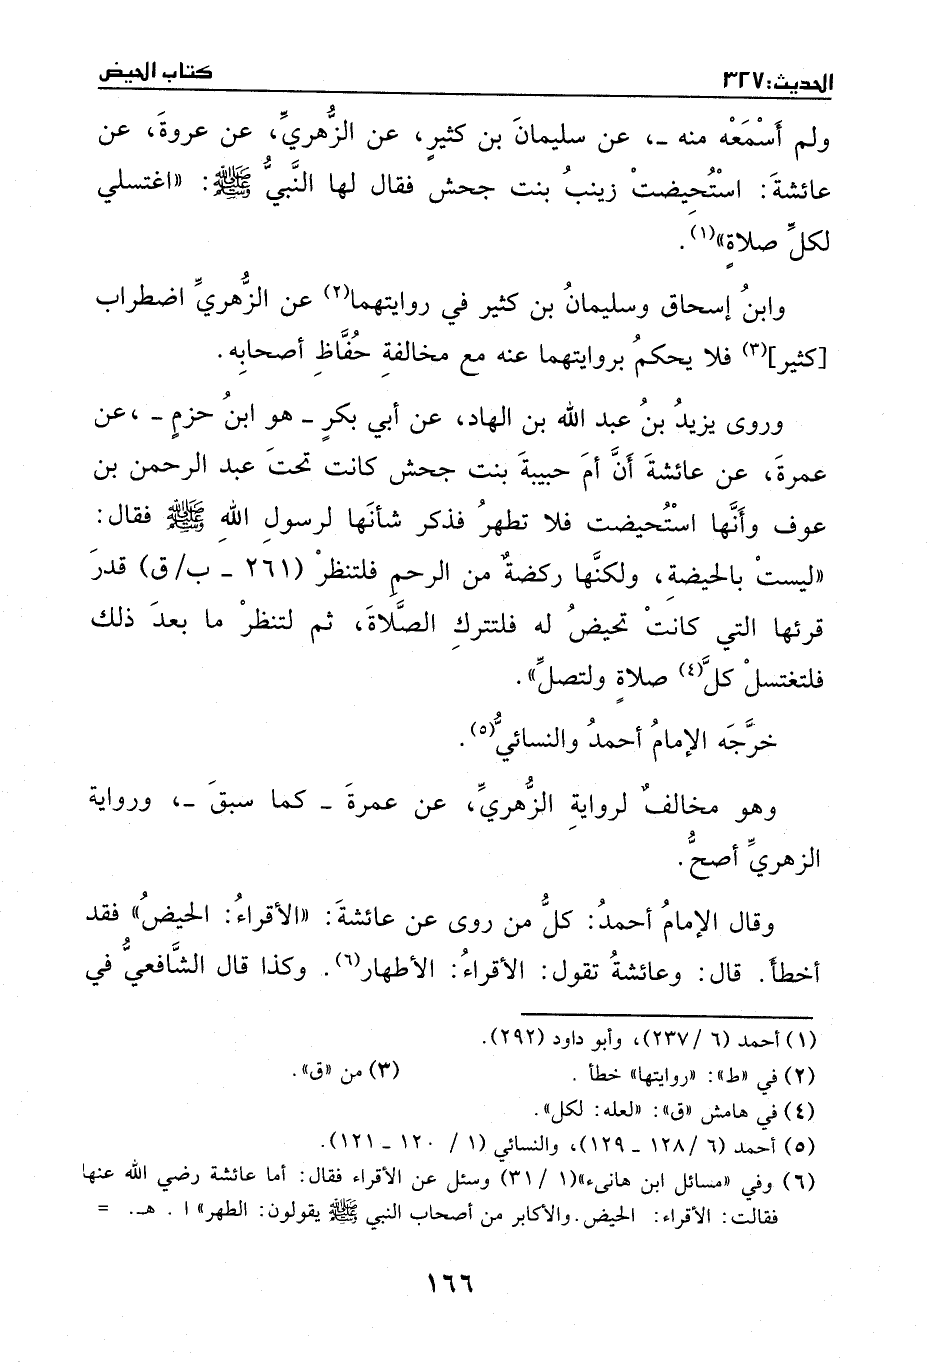 الحديث: ٣٢٧
كتاب الحيض
ولم أَسْمَعْه منه ـ، عن سليمانَ بن كثيرٍ، عن الزُّهريِّ، عن عروةَ، عن
عائشةَ: استُحِيضتْ زينبُ بنت جحش فقال لها النَّبيُّ ﷺ: «اغتسلي
لكلِّ صلاةٍ»(١).
وابنُ إسحاق وسليمانُ بن كثير في روايتهما(٢) عن الزُّهريِّ اضطراب
[كثير](٣) فلا يحكمُ بروايتهما عنه مع مخالفةِ حُفَّاظِ أصحابِه.
وروى يزيدُ بنُ عبد الله بن الهاد، عن أبي بكرٍ ـ هو ابنُ حزمٍ ـ، عن
عمرةَ، عن عائشةَ أنَّ أمَ حبيبةَ بنت جحش كانت تحتَ عبد الرحمن بن
عوف وأنَّها استُحيضت فلا تطهرُ فذكر شأنَها لرسولِ اللهِ ﷺ فقال:
«ليستْ بالحيضةِ، ولكنَّها ركضةٌ من الرحمِ فلتنظرْ (٢٦١ ـ ب/ق) قدرَ
قرئها التي كانتْ تحيضُ له فلتتركِ الصَّلاةَ، ثم لتنظرْ ما بعدَ ذلك
فلتغتسلْ كلَّ(٤) صلاةٍ ولتصلِّ».
خرَّجَه الإمامُ أحمدُ والنسائيُّ(٥).
وهو مخالفٌ لروايةِ الزُّهريِّ، عن عمرةَ ـ كما سبقَ ـ، ورواية
الزهريِّ أصحُّ.
وقال الإمامُ أحمدُ: كلُّ من روى عن عائشةَ: «الأقراءُ: الحيضُ» فقد
أخطأ. قال: وعائشةُ تقول: الأقراءُ: الأطهار(٦). وكذا قال الشَّافعيُّ في
(١) أحمد (٦/ ٢٣٧)، وأبو داود (٢٩٢).
(٢) في «ط»: «روايتها» خطأ .
(٣) من «ق».
(٤) في هامش «ق»: «لعله: لكل».
(٥) أحمد (٦/ ١٢٨ ـ ١٢٩)، والنسائي (١ / ١٢٠ ـ ١٢١).
(٦) وفي «مسائل ابن هانىء»(١ / ٣١) وسئل عن الأقراء فقال: أما عائشة رضي الله عنها
فقالت: الأقراء: الحيض. والأكابر من أصحاب النبي ﷺ يقولون: الطهر» ا . هـ. =
١٦٦